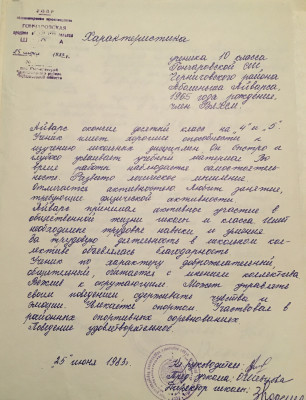 УССР
25 июня 1983 г.
Характеристика
ученика 10 класса
Гончаровской СШ
Черниговского района
1965 года рождения,
член ВЛКСМ.
Айварс окончил десятый класс на "4" и "5"
Ученик имеет хорошие способности к
изучению школьных дисциплин. Он быстро и
глубоко усваивает учебный материал. Во
время работы наблюдается самостоятель-
ность. Развито логическое мышление
Отличается активностью. Любит занятия,
требующие физической активности.
Айварс принимал активное участие в
общественной жизни школы и класса. Имеет
необходимые трудовые навыки и умения
За трудовую деятельность в школьном кол-
лективе объявлялась благодарность
Ученик по характеру доброжелательный,
общительный, считается с мнением коллектива
Вежлив к окружающим. Может управлять
своим поведением, сдерживать чувства и
эмоции. Увлекается спортом. Участвовал в
районных спортивных соревнованиях.
Поведение удовлетворительное.
25 июня 1983 г.
Кл. руководитель
Пред. учкома
Директор школы